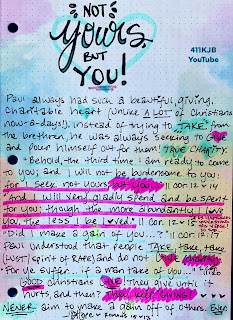 NOT
Yours,
BUT
YOU!
411KJB
YouTube
Paul always had such a beautiful, giving,
charitable heart (unlike A LOT of Christians
now-a-days!). Instead of trying to TAKE from
the brethren, he was always seeking to GIVE
and pour himself out for them! TRUE CHARITY.
"Behold, the third time I am ready to come
to you; and I will not be burdensome to you:
for I seek not yours, but you..." II COR 12 14
"And I will very gladly spend and be spent
for you; though the more abundantly I love
you, the less I be loved." II COR 12 15
"Did I make a gain of you...?" II COR 12 17
Paul understood that people TAKE, TAKE, TAKE
(LUST/spirit of RAPE) and do not LOVE
"For ye suffer... if a man take of you..." 11:20
GOOD Christians GIVE. They give until it
hurts, and then they keep giving!
NEVER aim to make a gain off of others. Ever.
Romans 15 1-3